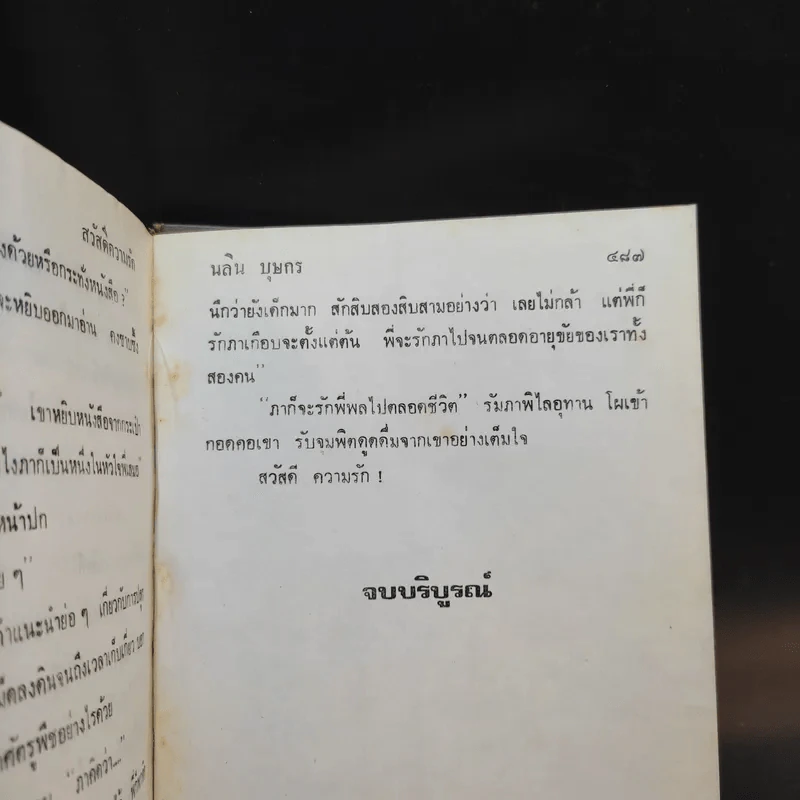 สวัสดีความรัก
งด้วยหรือกระทั่งหนังสือ ?"
จะหยิบออกมาอ่าน คงซาบซึ้ง
เขาหยิบหนังสือจากกระเป๋า
ไงภาก็เป็นหนึ่งในหัวใจพี่เสมอ"
หน้าปก
ย ๆ"
คำแนะนำย่อ ๆ เกี่ยวกับการปลูก
ลงดินจนถึงเวลาเก็บเกี่ยว
ศัตรูพืชอย่างไรด้วย
"ภาคิดว่า....
นลิน บุษกร ๔๘๗
นึกว่ายังเด็กมาก สักสิบสองสิบสามอย่างว่า เลยไม่กล้า แต่พี่ก็
รักภาเกือบจะตั้งแต่ต้น พี่จะรักภาไปจนตลอดอายุขัยของเราทั้ง
สองคน"
"ภาก็จะรักพี่พลไปตลอดชีวิต" รัมภาพิไลอุทาน โผเข้า
กอดคอเขา รับจุมพิตดูดดื่มจากเขาอย่างเต็มใจ
สวัสดี ความรัก !
จบบริบูรณ์